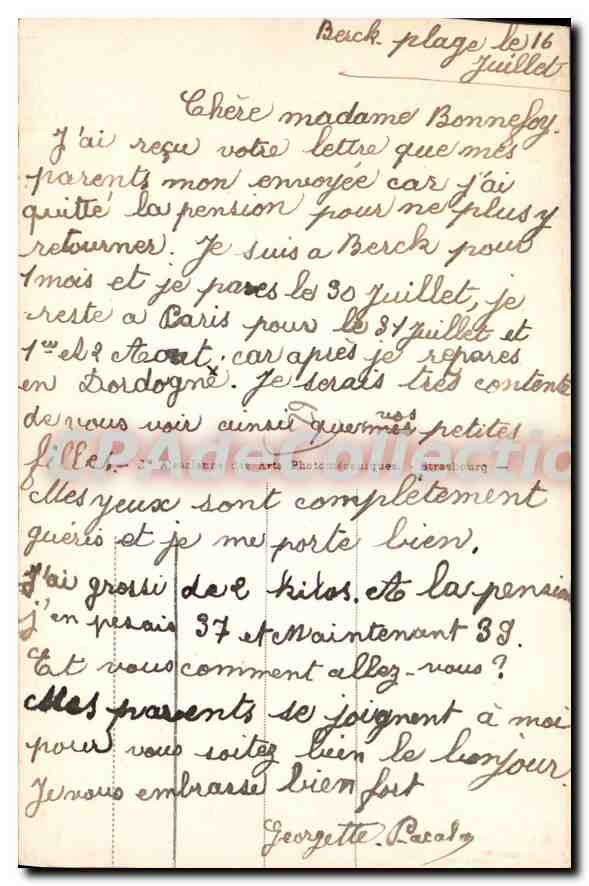 Berck-plage le 16
Juillet
Chère madame Bonnefoy.
J'ai reçu votre lettre que mes
parents mon envoyée car j'ai
quitté la pension pour ne plus y
retourner. Je suis a Berck pour
1 mois et je pares le 30 Juillet, je
reste a Paris pour le 31 Juillet et
1er et 2 Aout, car après je repares
en Dordogne. Je serais très contente
de vous voir ainsi que vos petites
filles.
CPAdeCollection
Cie Alsacienne des Arts Photomécaniques, Strasbourg
Mes yeux sont complètement
guéris et je me porte bien.
J'ai grossi de 2 kilos. A la pension
j'en pesais 37 et Maintenant 39.
Et vous comment allez-vous?
Mes parents se joignent à moi
pour vous soitez bien le bonjour.
Je vous embrasse bien fort
Georgette